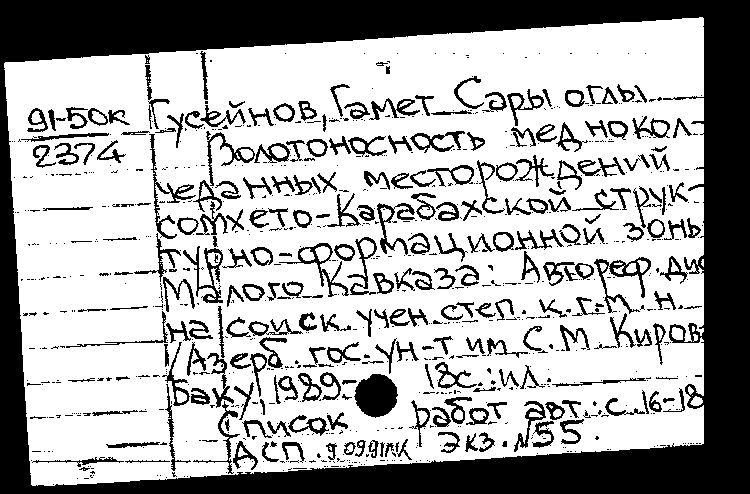 91-50к Гусейнов, Гамет Сары оглы
2374 Золотоносность меднокол-
чеданных месторождений
сомхето-Карабахской струк-
турно-формационной зоны
Малого Кавказа: Автореф. дис
на соиск. учен. степ. к. г.-м. н.
/Азерб. гос. ун-т им С. М. Кирова
Баку, 1989- 18с.: ил.
Список работ авт.: с. 16-18
ДСП. Экз. №55.